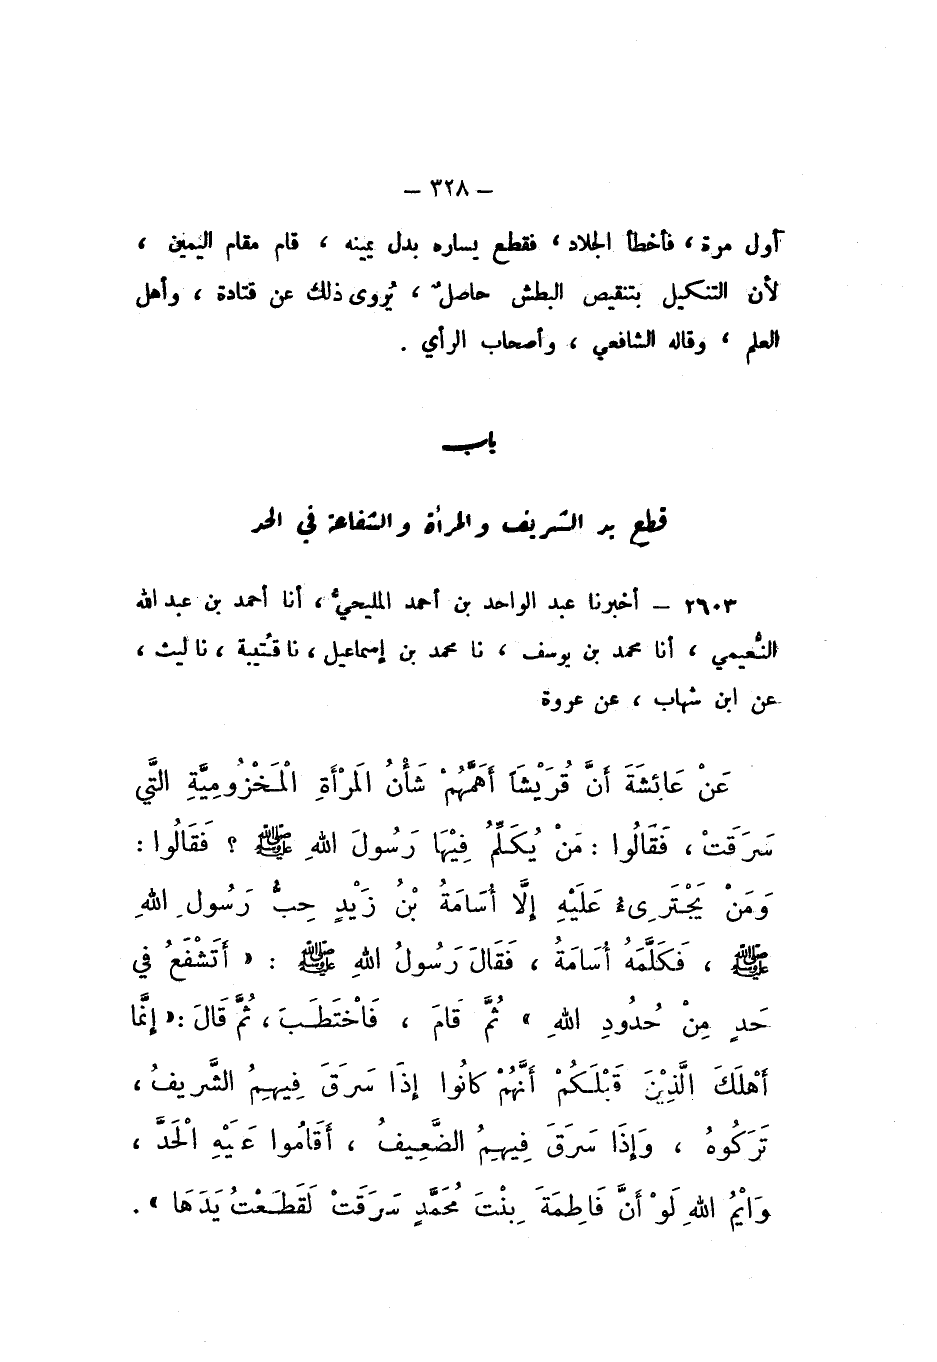 – ٣٢٨ –
أول مرة ، فأخطأ الجلاد ، فقطع يساره بدل يمينه ، قام مقام اليمين ،
لأن التنكيل بتنقيص البطش حاصلٌ ، يُروى ذلك عن قتادة ، وأهل
العلم ، وقاله الشافعي ، وأصحاب الرأي .
باب
قطع يد الشريف والمرأة والشفاعة في الحد
٢٦٠٣ – أخبرنا عبد الواحد بن أحمد المليحيُّ ، أنا أحمد بن عبد الله
النُّعيمي ، أنا محمد بن يوسف ، نا محمد بن إسماعيل ، نا قُتَيبة ، نا ليث ،
عن ابن شهاب ، عن عروة
عَنْ عَائِشَةَ أَنَّ قُرَيْشَاً أَهَمَّهُمْ شَأْنُ المَرْأَةِ الْمَخْزُومِيَّةِ الَّتي
سَرَقَتْ ، فَقَالُوا : مَنْ يُكَلِّمُ فِيْهَا رَسُولَ اللهِ ﷺ ؟ فَقَالُوا :
وَمَنْ يَجْتَرِىءُ عَلَيْهِ إِلَّا أُسَامَةُ بْنُ زَيْدٍ حِبُّ رَسُولِ اللهِ
ﷺ ، فَكَلَّمَهُ أُسَامَةُ ، فَقَالَ رَسُولُ اللهِ ﷺ : « أَتَشْفَعُ في
حَدٍ مِنْ حُدُودِ اللهِ » ثُمَّ قَامَ ، فَاْخْتَطَبَ ، ثُمَّ قَالَ : « إِنَّمَا
أَهْلَكَ الَّذِيْنَ قَبْلَكُمْ أَنَّهُمْ كانُوا إِذَا سَرَقَ فِيهِمُ الشَّرِيفُ ،
تَرَكُوهُ ، وَإِذَا سَرَقَ فِيهِمُ الضَّعِيفُ ، أَقَامُوا عَلَيْهِ الْحَدَّ ،
وَايْمُ اللهِ لَوْ أَنَّ فَاطِمَةَ بِنْتَ مُحَمَّدٍ سَرَقَتْ لَقَطَعْتُ يَدَهَا » .